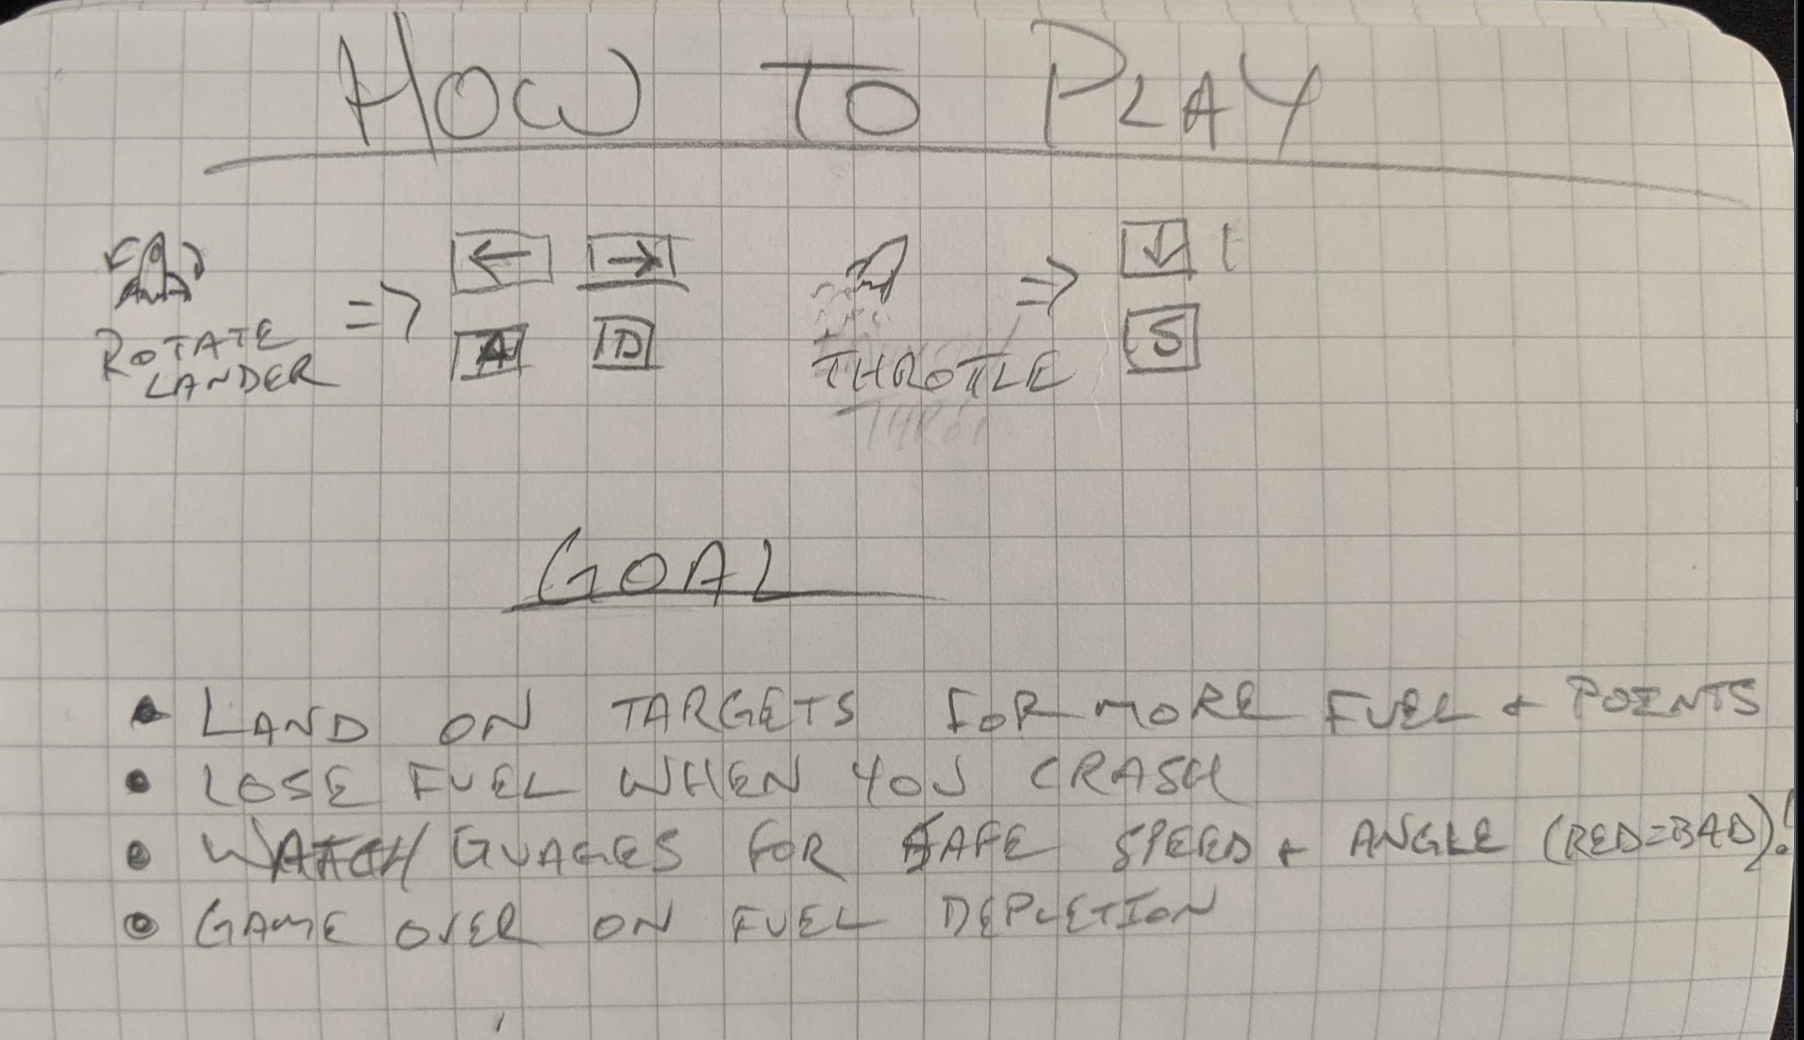 HOW TO PLAY
=> ← → => ↓
ROTATE LANDER A D THROTLE S
GOAL
• LAND ON TARGETS FOR MORE FUEL + POINTS
• LOSE FUEL WHEN YOU CRASH
• WATCH GUAGES FOR SAFE SPEED + ANGLE (RED=BAD)!
• GAME OVER ON FUEL DEPLETION